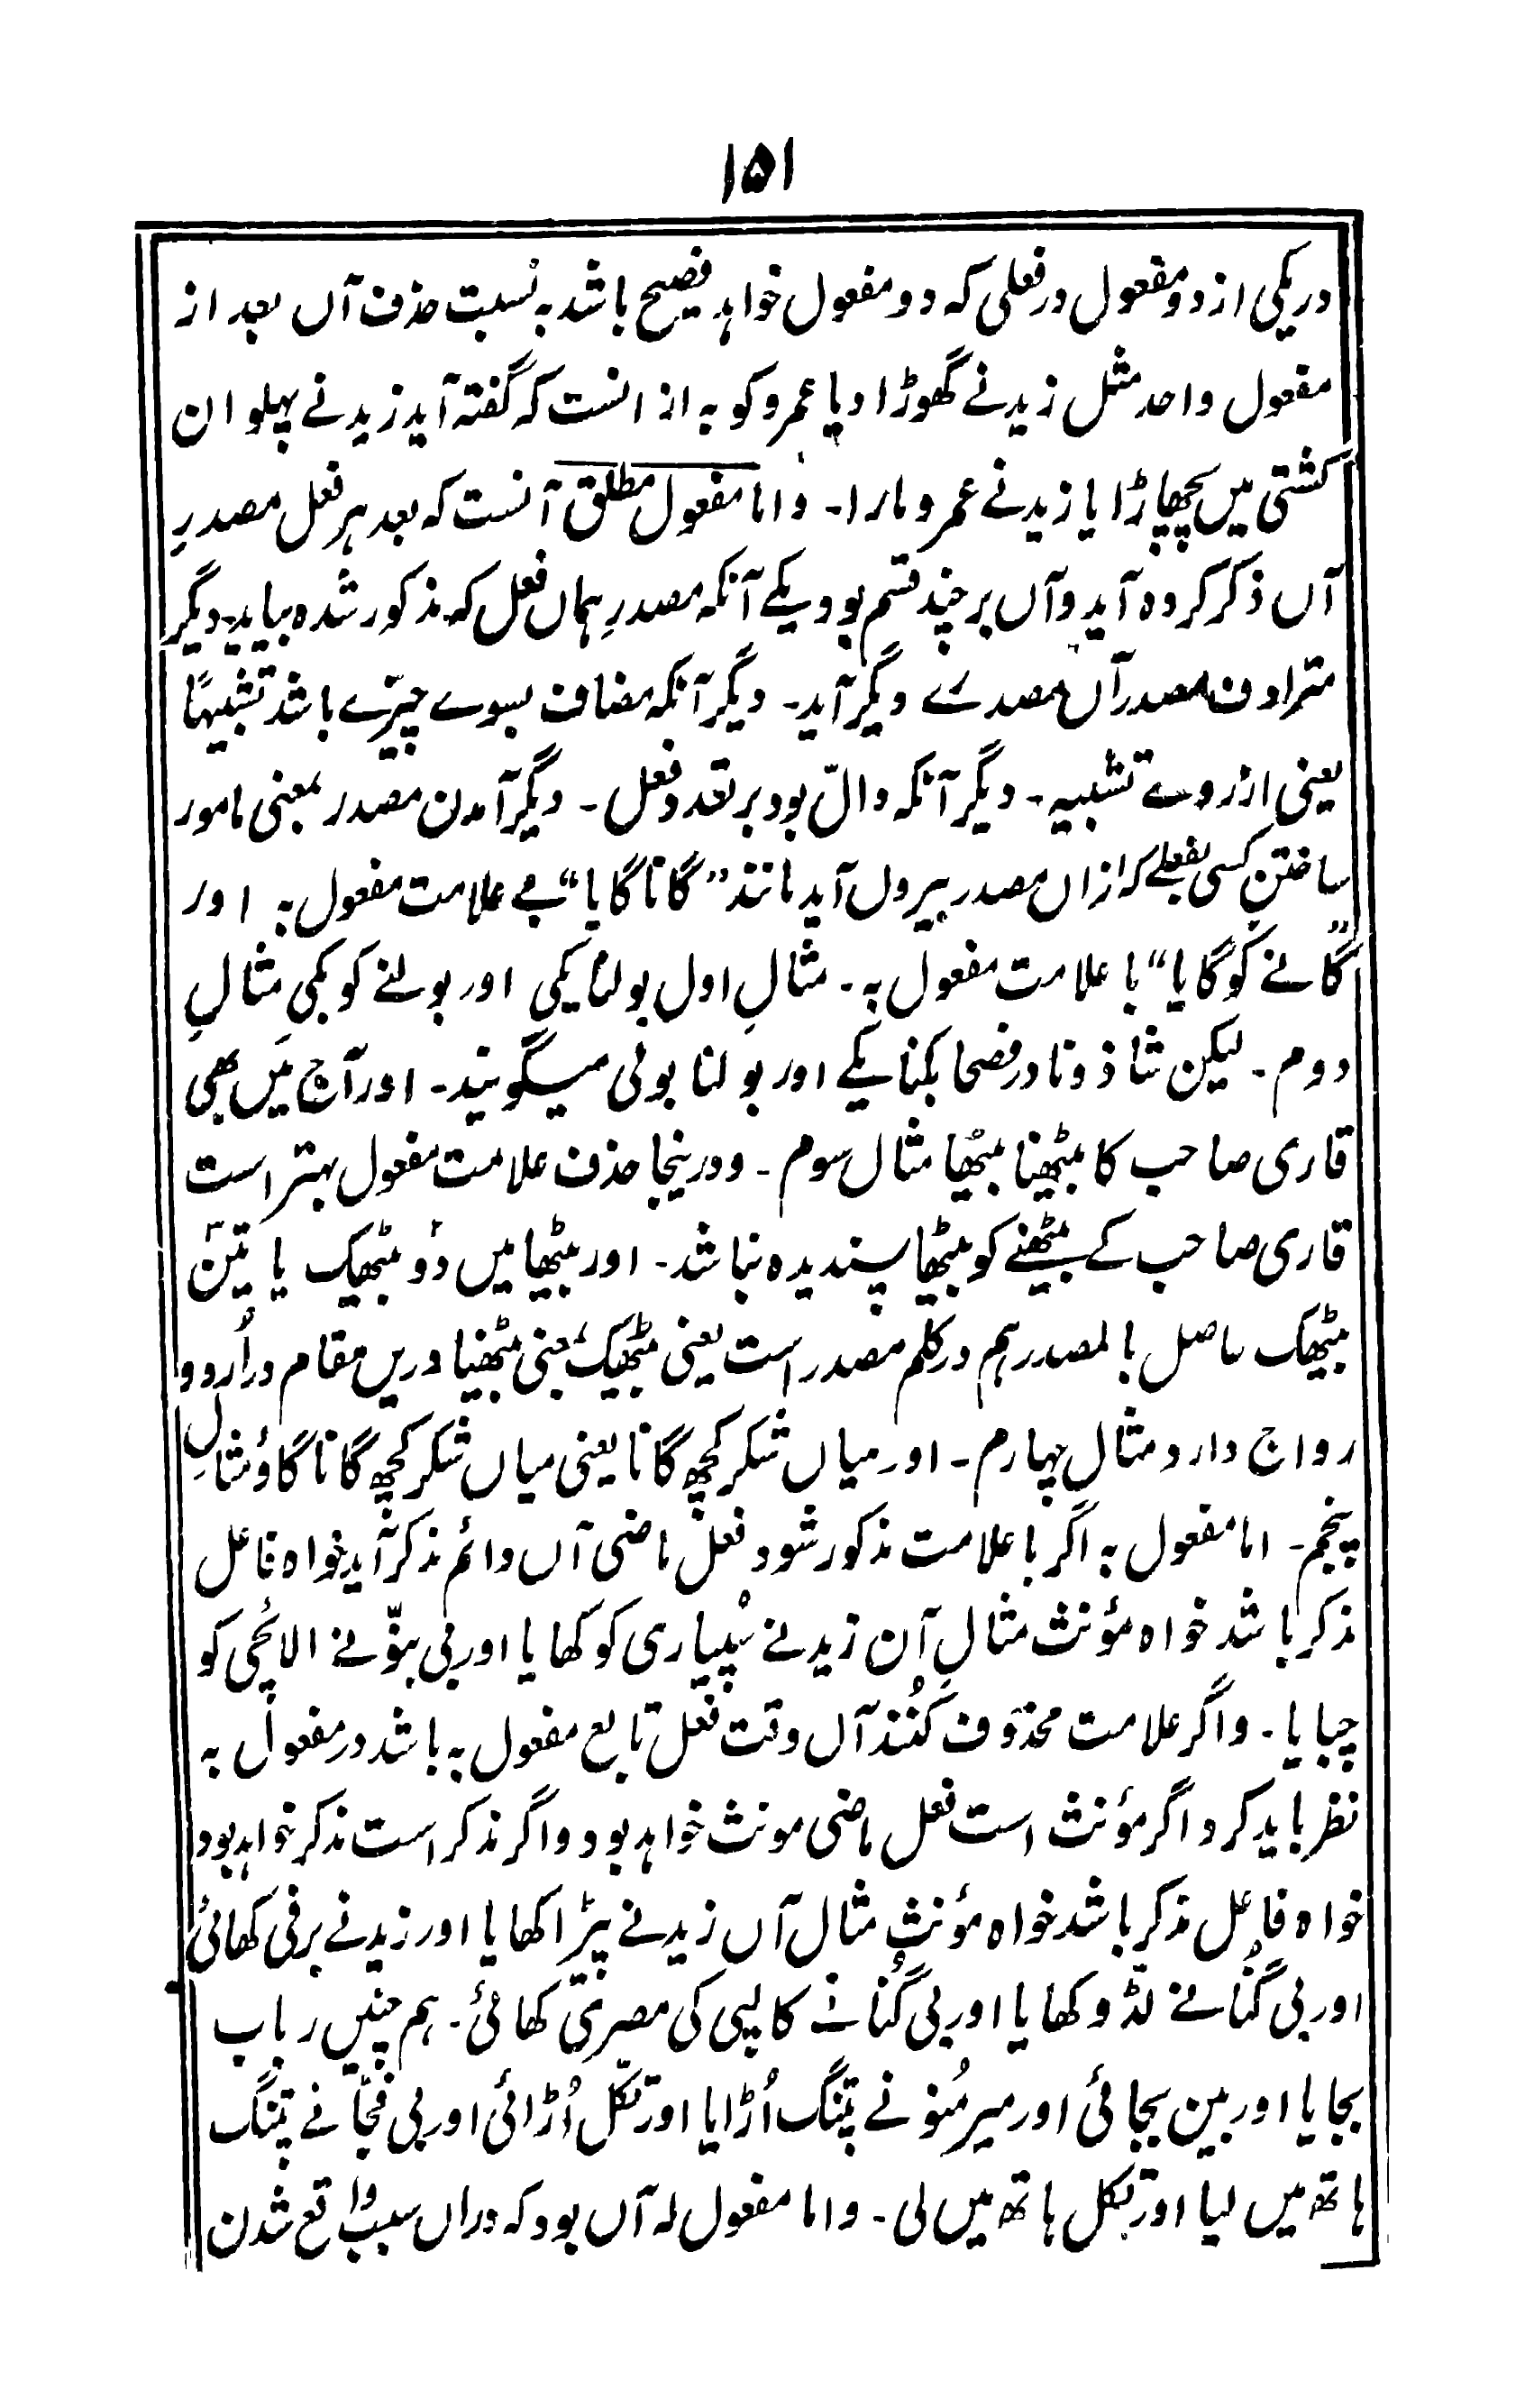 ۱۵۱
در یکی از دو مفعول در فعلی که دو مفعول خواہد فصیح باشد بہ نسبت حذف آں بعد از
مفعول واحد مثل زید نے گھوڑا دیا عمرو کو بہ از انست کہ گفتہ آید زید نے پہلوان
کشتی میں پچھاڑا یا زید نے عمرو مارا۔ واما مفعول مطلق آنست کہ بعد ہر فعل مصدرِ
آں ذکر کردہ آید وآں بر چند قسم بود یکے آنکہ مصدرِ ہماں فعل کہ مذکور شدہ بیاید۔ دیگر
مترادف مصدر آں مصدرے دیگر آید۔ دیگر آنکہ مضاف بسوے چیزے باشد تشبیہًا
یعنی از روے تشبیہ۔ دیگر آنکہ دالّ بود بر تعدد فعل۔ دیگر آمدن مصدر بمعنی مامور
ساختنِ کسی بفعلے کہ ازاں مصدر بیروں آید مانند ”گانا گایا“ بے علامت مفعول بہ اور
”گانے کو گایا“ با علامت مفعول بہ۔ مثالِ اول بولنا بکی اور بولنے کو بکی مثالِ
دوم۔ لیکن شاذ و نادر فصحا بکنا بکے اور بولنا بولی میگویند۔ اور آج میں بھی
قاری صاحب کا بیٹھنا بیٹھا مثال سوم۔ و درینجا حذف علامت مفعول بہتر است
قاری صاحب کے بیٹھنے کو بیٹھا پسندیدہ نباشد۔ اور بیٹھا میں دو بیٹھک یا تین
بیٹھک حاصل بالمصدر ہم در کلم مصدر است یعنی بیٹھک بمعنی بیٹھنا دریں مقام در اُردو
رواج دارد مثال چہارم۔ اور میاں شکر کچھ گانا یعنی میاں شکر کچھ گانا گاؤ مثالِ
پنجم۔ اما مفعول بہ اگر با علامت مذکور شود فعل ماضی آں دائم مذکر آید خواہ فاعل
مذکر باشد خواہ مؤنث مثالِ آن زید نے سُپیاری کو کھایا اور بی بنّو نے الائچی کو
چبایا۔ و اگر علامت محذوف کُنند آں وقت فعل تابع مفعول بہ باشد در مفعول بہ
نظر باید کرد اگر مؤنث است فعل ماضی مونث خواہد بود و اگر مذکر است مذکر خواہد بود
خواہ فاعل مذکر باشد خواہ مؤنث مثال آں زید نے پیڑا کھایا اور زید نے برفی کھائی
اور بی گُنا نے لڈو کھایا اور بی گُنا نے کالپی کی مصری کھائی۔ ہم چنیں رباب
بجایا اور بین بجائی اور میر مُنو نے پتنگ اُڑایا اور تکّل اُڑائی اور بی فجّا نے پتنگ
ہاتھ میں لیا اور تکل ہاتھ میں لی۔ واما مفعول لہ آں بود کہ دراں سبب واقع شدن